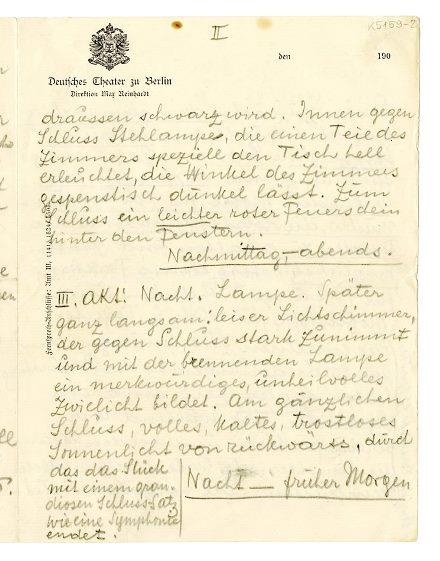 II
K5159-2
Deutsches Theater zu Berlin
Direktion Max Reinhardt
den 190
draussen schwarz wird. Innen gegen
Schluss Stehlampe, die einen Teil des
Zimmers speziell den Tisch hell
erleuchtet, die Winkel des Zimmers
gespenstisch dunkel lässt. Zum
Schluss ein leichter roter Feuerschein
hinter den Fenstern.
Nachmittag,-abends.
III. Akt: Nacht. Lampe. Später
ganz langsam: leiser Lichtschimmer,
der gegen Schluss stark zunimmt
und mit der brennenden Lampe
ein merkwürdiges, unheilvolles
Zwielicht bildet. Am gänzlichen
Schluss, volles, kaltes, trostloses
Sonnenlicht von rückwärts, durch
das das Stück
mit einem gran-
diosen Schluss-Satz
wie eine Symphonie
endet.
Nacht — früher Morgen
Fernsprech-Anschlüsse: Amt III,